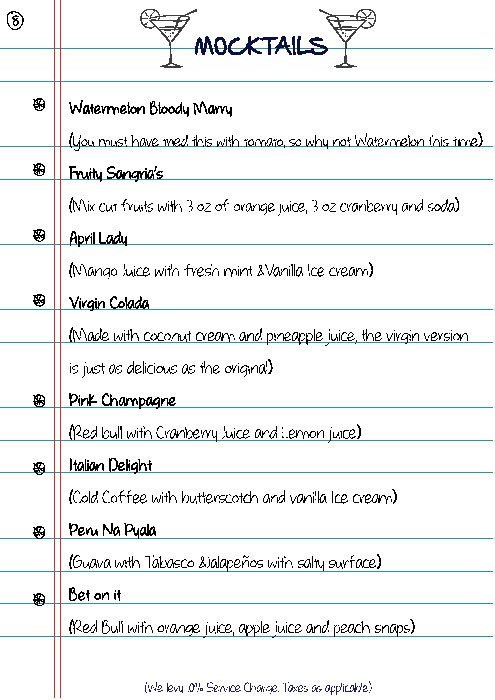 8
MOCKTAILS
Watermelon Bloody Marry
(You must have tried this with tomato, so why not Watermelon this time)
Fruity Sangria's
(Mix cut fruits with 3 oz of orange juice, 3 oz cranberry and soda)
April Lady
(Mango Juice with fresh mint &Vanilla Ice cream)
Virgin Colada
(Made with coconut cream and pineapple juice, the virgin version
is just as delicious as the original)
Pink Champagne
(Red bull with Cranberry Juice and Lemon juice)
Italian Delight
(Cold Coffee with butterscotch and vanilla Ice cream)
Peru Na Pyala
(Guava with Tabasco &Jalapeños with salty surface)
Bet on it
(Red Bull with orange juice, apple juice and peach snaps)
(We levy Service Charge. Taxes as applicable)